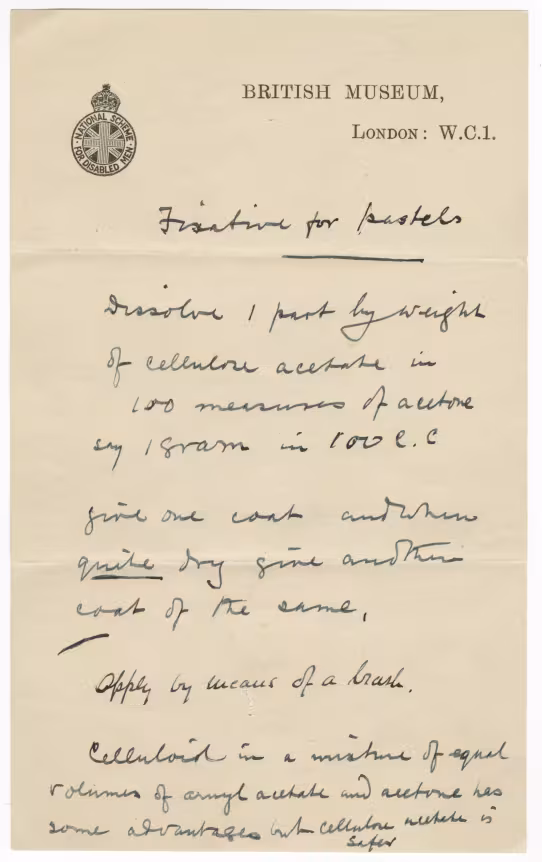 BRITISH MUSEUM,
LONDON: W.C.1.
NATIONAL SCHEME
FOR DISABLED MEN
Fixative for pastels
Dissolve 1 part by weight
of cellulose acetate in
100 measures of acetone
say 1 gram in 100 C.C
give one coat and when
quite dry give another
coat of the same,
Apply by means of a brush.
Celluloid in a mixture of equal
volumes of amyl acetate and acetone has
some advantages but cellulose acetate is
safer